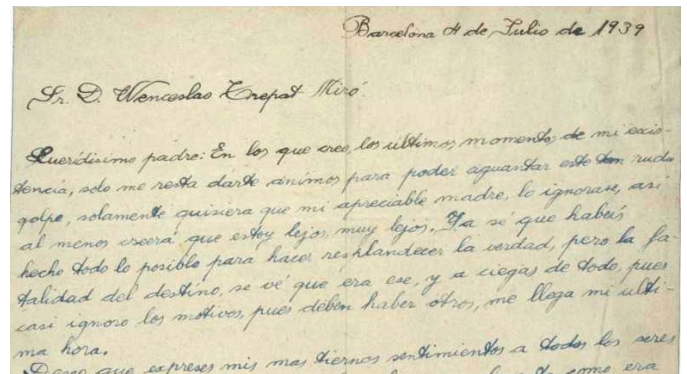 Barcelona 4 de Julio de 1939
Sr. D. Wenceslao Trepat Miró
Queridisimo padre: En los que creo, los ultimos momentos de mi exis-
tencia, solo me resta darte animos para poder aguantar este tan rudo
golpe, solamente quisiera que mi apreciable madre, lo ignorase, asi
al menos creerá que estoy lejos, muy lejos. Ya sé que habeis
hecho todo lo posible para hacer resplandecer la verdad, pero la fa-
talidad del destino, se vé que era ese, y a ciegas de todo, pues
casi ignoro los motivos, pues deben haber otros, me llega mi ulti-
ma hora.
Deseo que expreses mis mas tiernos sentimientos a todos los seres
como era